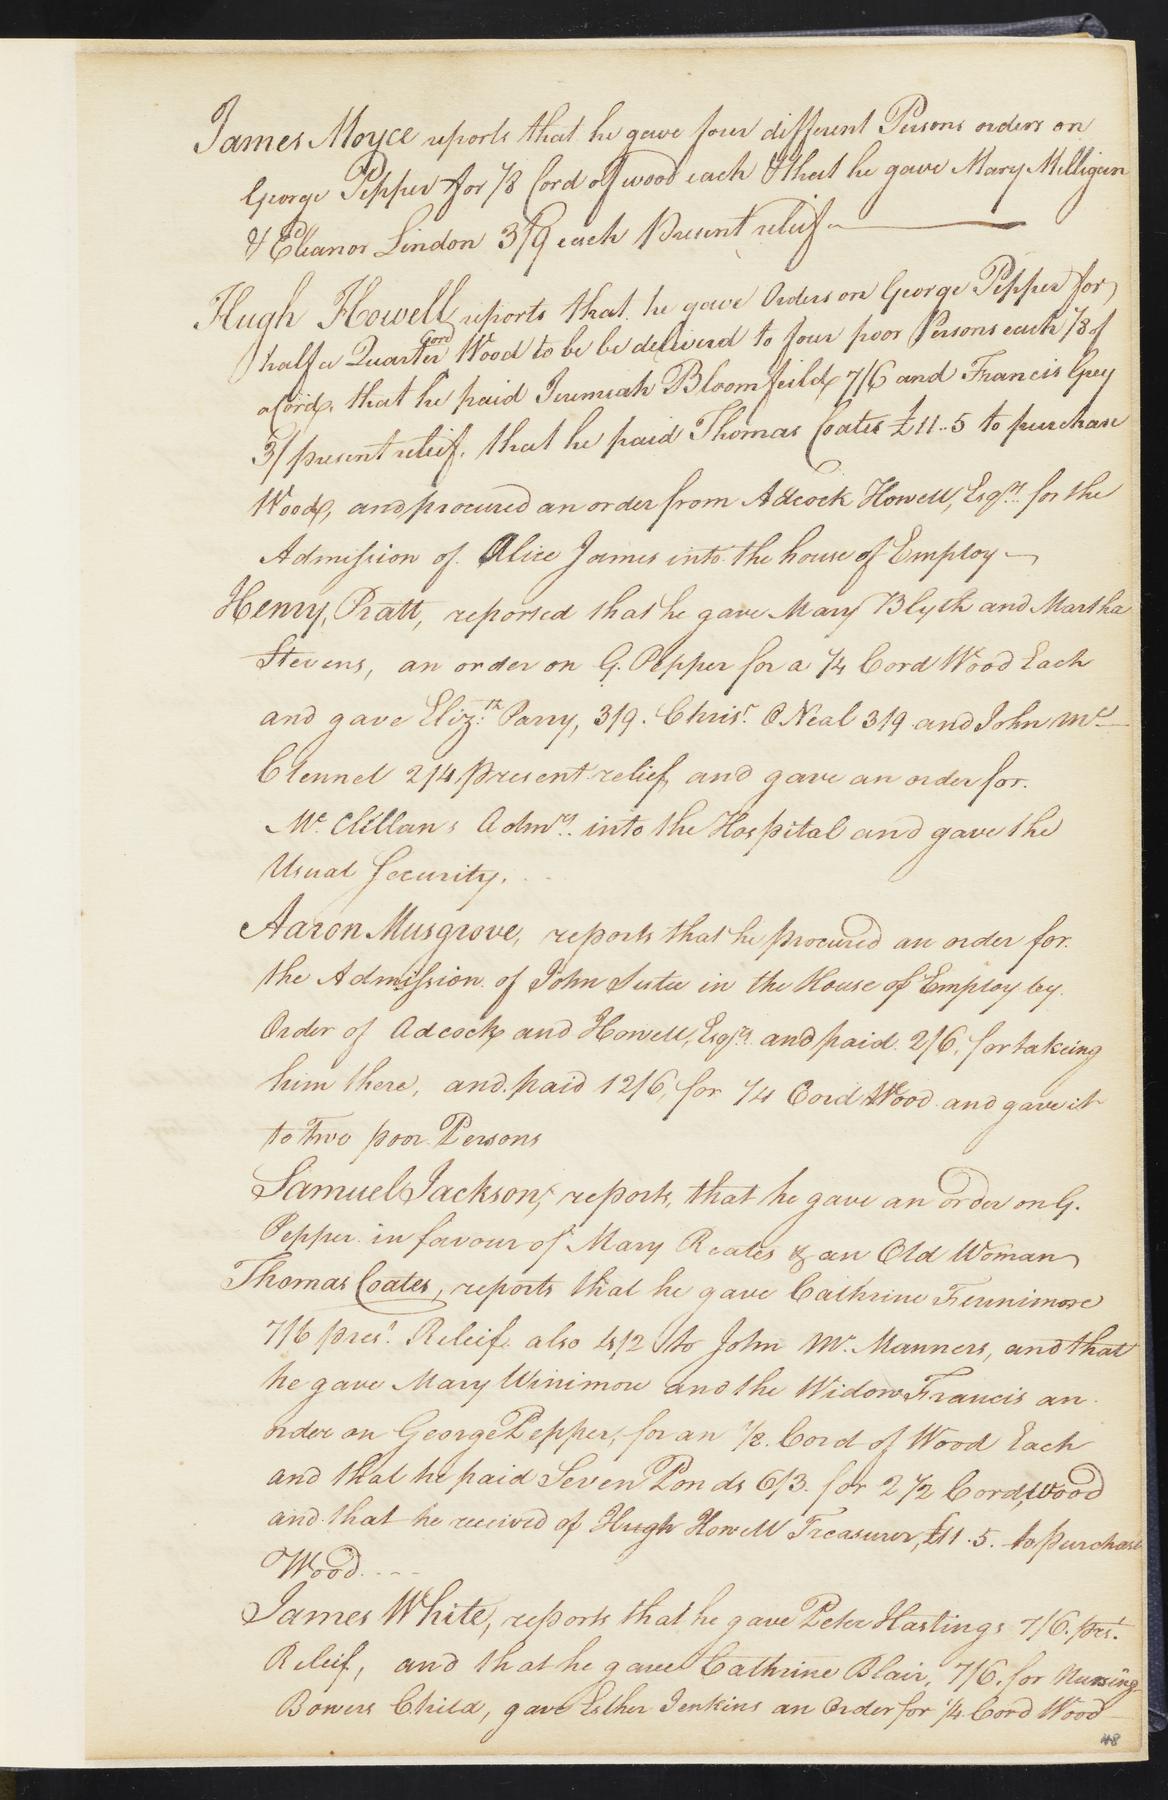 James Moyce reports that he gave four different Persons orders on
George Pepper for 1/8 Cord of wood each & that he gave Mary Milligan
& Eleanor Lindon 3/9 each Present relief
Hugh Howell reports that he gave Orders on George Pepper for
half a Quarter Cord Wood to be be delivered to four poor Persons each 1/8 of
a Cord, that he paid Jeremiah Bloomfeild 7/6 and Francis Grey
3/ present relief, that he paid Thomas Coates £11..5 to purchase
Wood, and procured an order from Adcock Howell, Esqrs. for the
Admission of Alice James into the house of Employ
Henry, Pratt, reported that he gave Mary Blyth and Martha
Stevens, an order on G. Pepper for a 1/4 Cord Wood Each
and gave Eliz:th Parry, 3/9. Chrisr. ONeal 3/9 and John Mc
Clennel 2/4 present relief, and gave an order for.
Mc. Clellans Admn. into the Hospital and gave the
Usual Security.
Aaron Musgrove, reports that he procured an order for
the Admission of John Sutee in the House of Employ by
Order of Adcock and Howell, Esqrs. and paid 2/6, for takeing
him there, and paid 12/6, for 1/4 Cord Wood and gave it
to Two poor Persons
Samuel Jackson, reports, that he gave an order on G.
Pepper in favour of Mary Reates & an Old Woman
Thomas Coates, reports that he gave Cathrine Fennimore
7/6 prest. Releif also 4/2 to John Mc. Manners, and that
he gave Mary Winimore and the Widow Francis an
order on George Pepper, for an 1/8. Cord of Wood Each
and that he paid Seven Ponds 6/3. for 2 1/2 Cord, wood
and that he received of Hugh Howell Treasurer, £11.5. to purchase
Wood....
James White, reports that he gave Peter Hastings 7/6. prst.
Releif, and that he gave Cathrine Blair, 7/6. for Nursing
Bowers Child, gave Esther Jenkins an Order for 1/4 Cord Wood
48